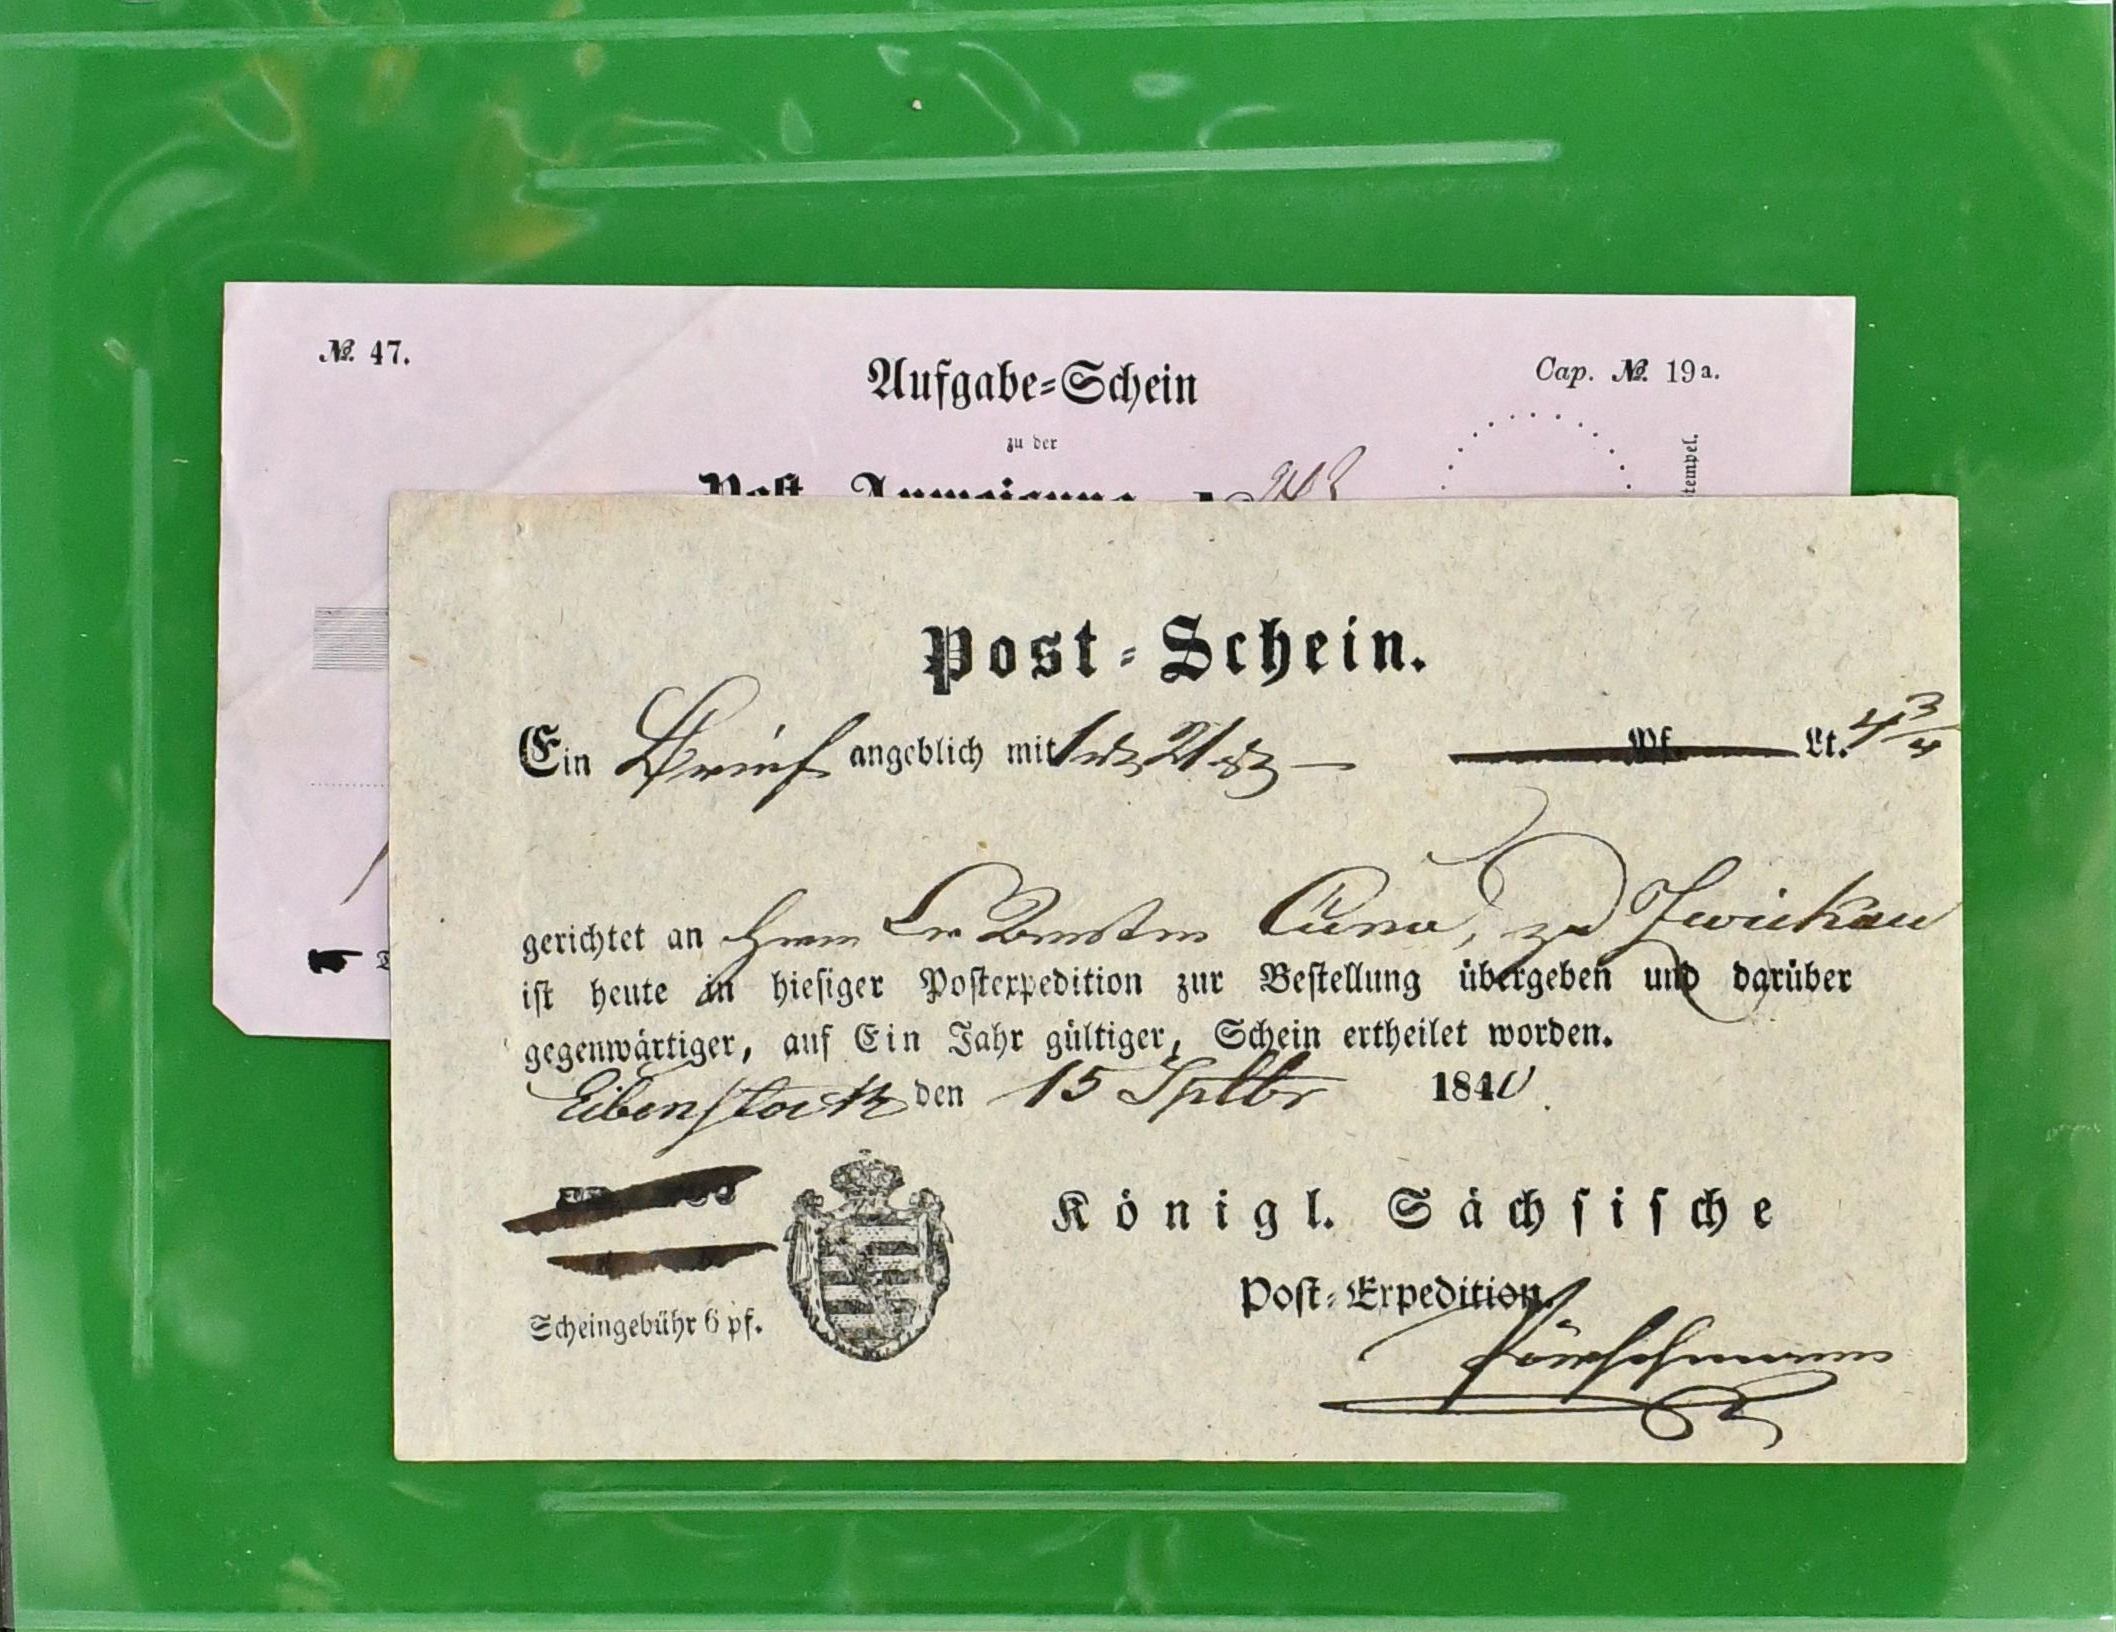 №. 47.
Aufgabe-Schein
Cap. №. 19a.
zu der
Post-Anweisung
tempel.
Post-Schein.
Ein Brief angeblich mit 1 21 Pf. Lt. 4 3/4
gerichtet an Herrn zu Zwickau
ist heute in hiesiger Postexpedition zur Bestellung übergeben und darüber
gegenwärtiger, auf Ein Jahr gültiger, Schein ertheilet worden.
Eibenstock den 15 Septbr 1840.
Königl. Sächsische
Post-Expedition.
Scheingebühr 6 pf.